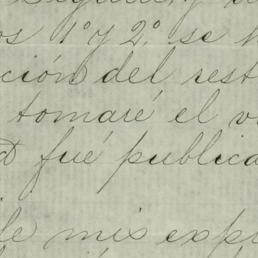 os 1º y 2º. se
ción del rest
tomaré el v
fué publica
de mis exp